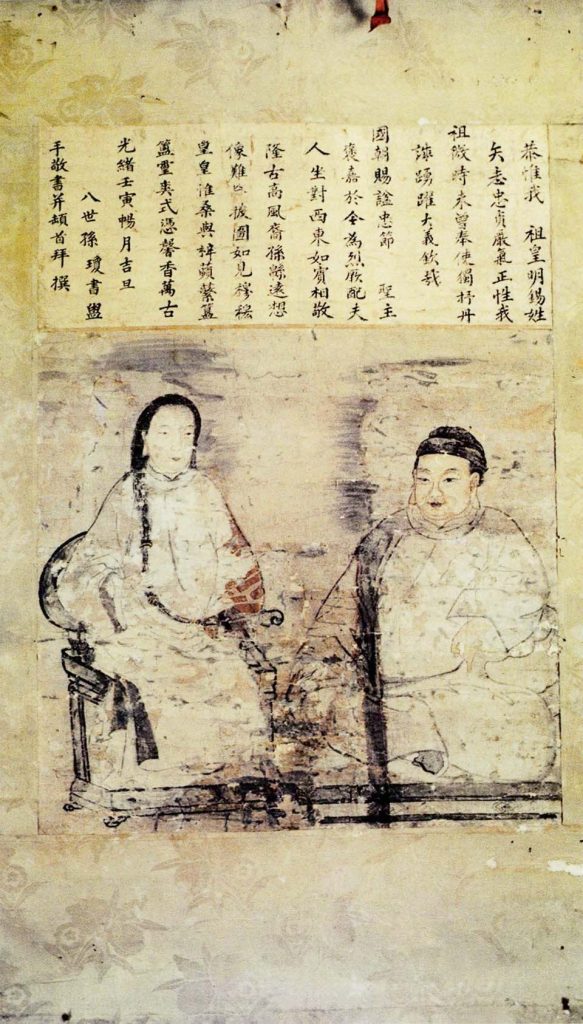 恭惟我 祖皇明錫姓
矢志忠貞嚴氣正性我
祖微時未曾奉使獨抒丹
誠踴躍大義欽哉
國朝賜諡忠節 聖主
褒嘉於今為烈厥配夫
人坐對西東如賓相敬
隆古高風裔孫緜遠想
像難 披圖如見穆穆
皇皇維桑與梓蘋蘩簠
簋靈爽式憑馨香萬古
光緒壬寅暢月吉旦
八世孫 瓊書盥
手敬書并頓首拜撰